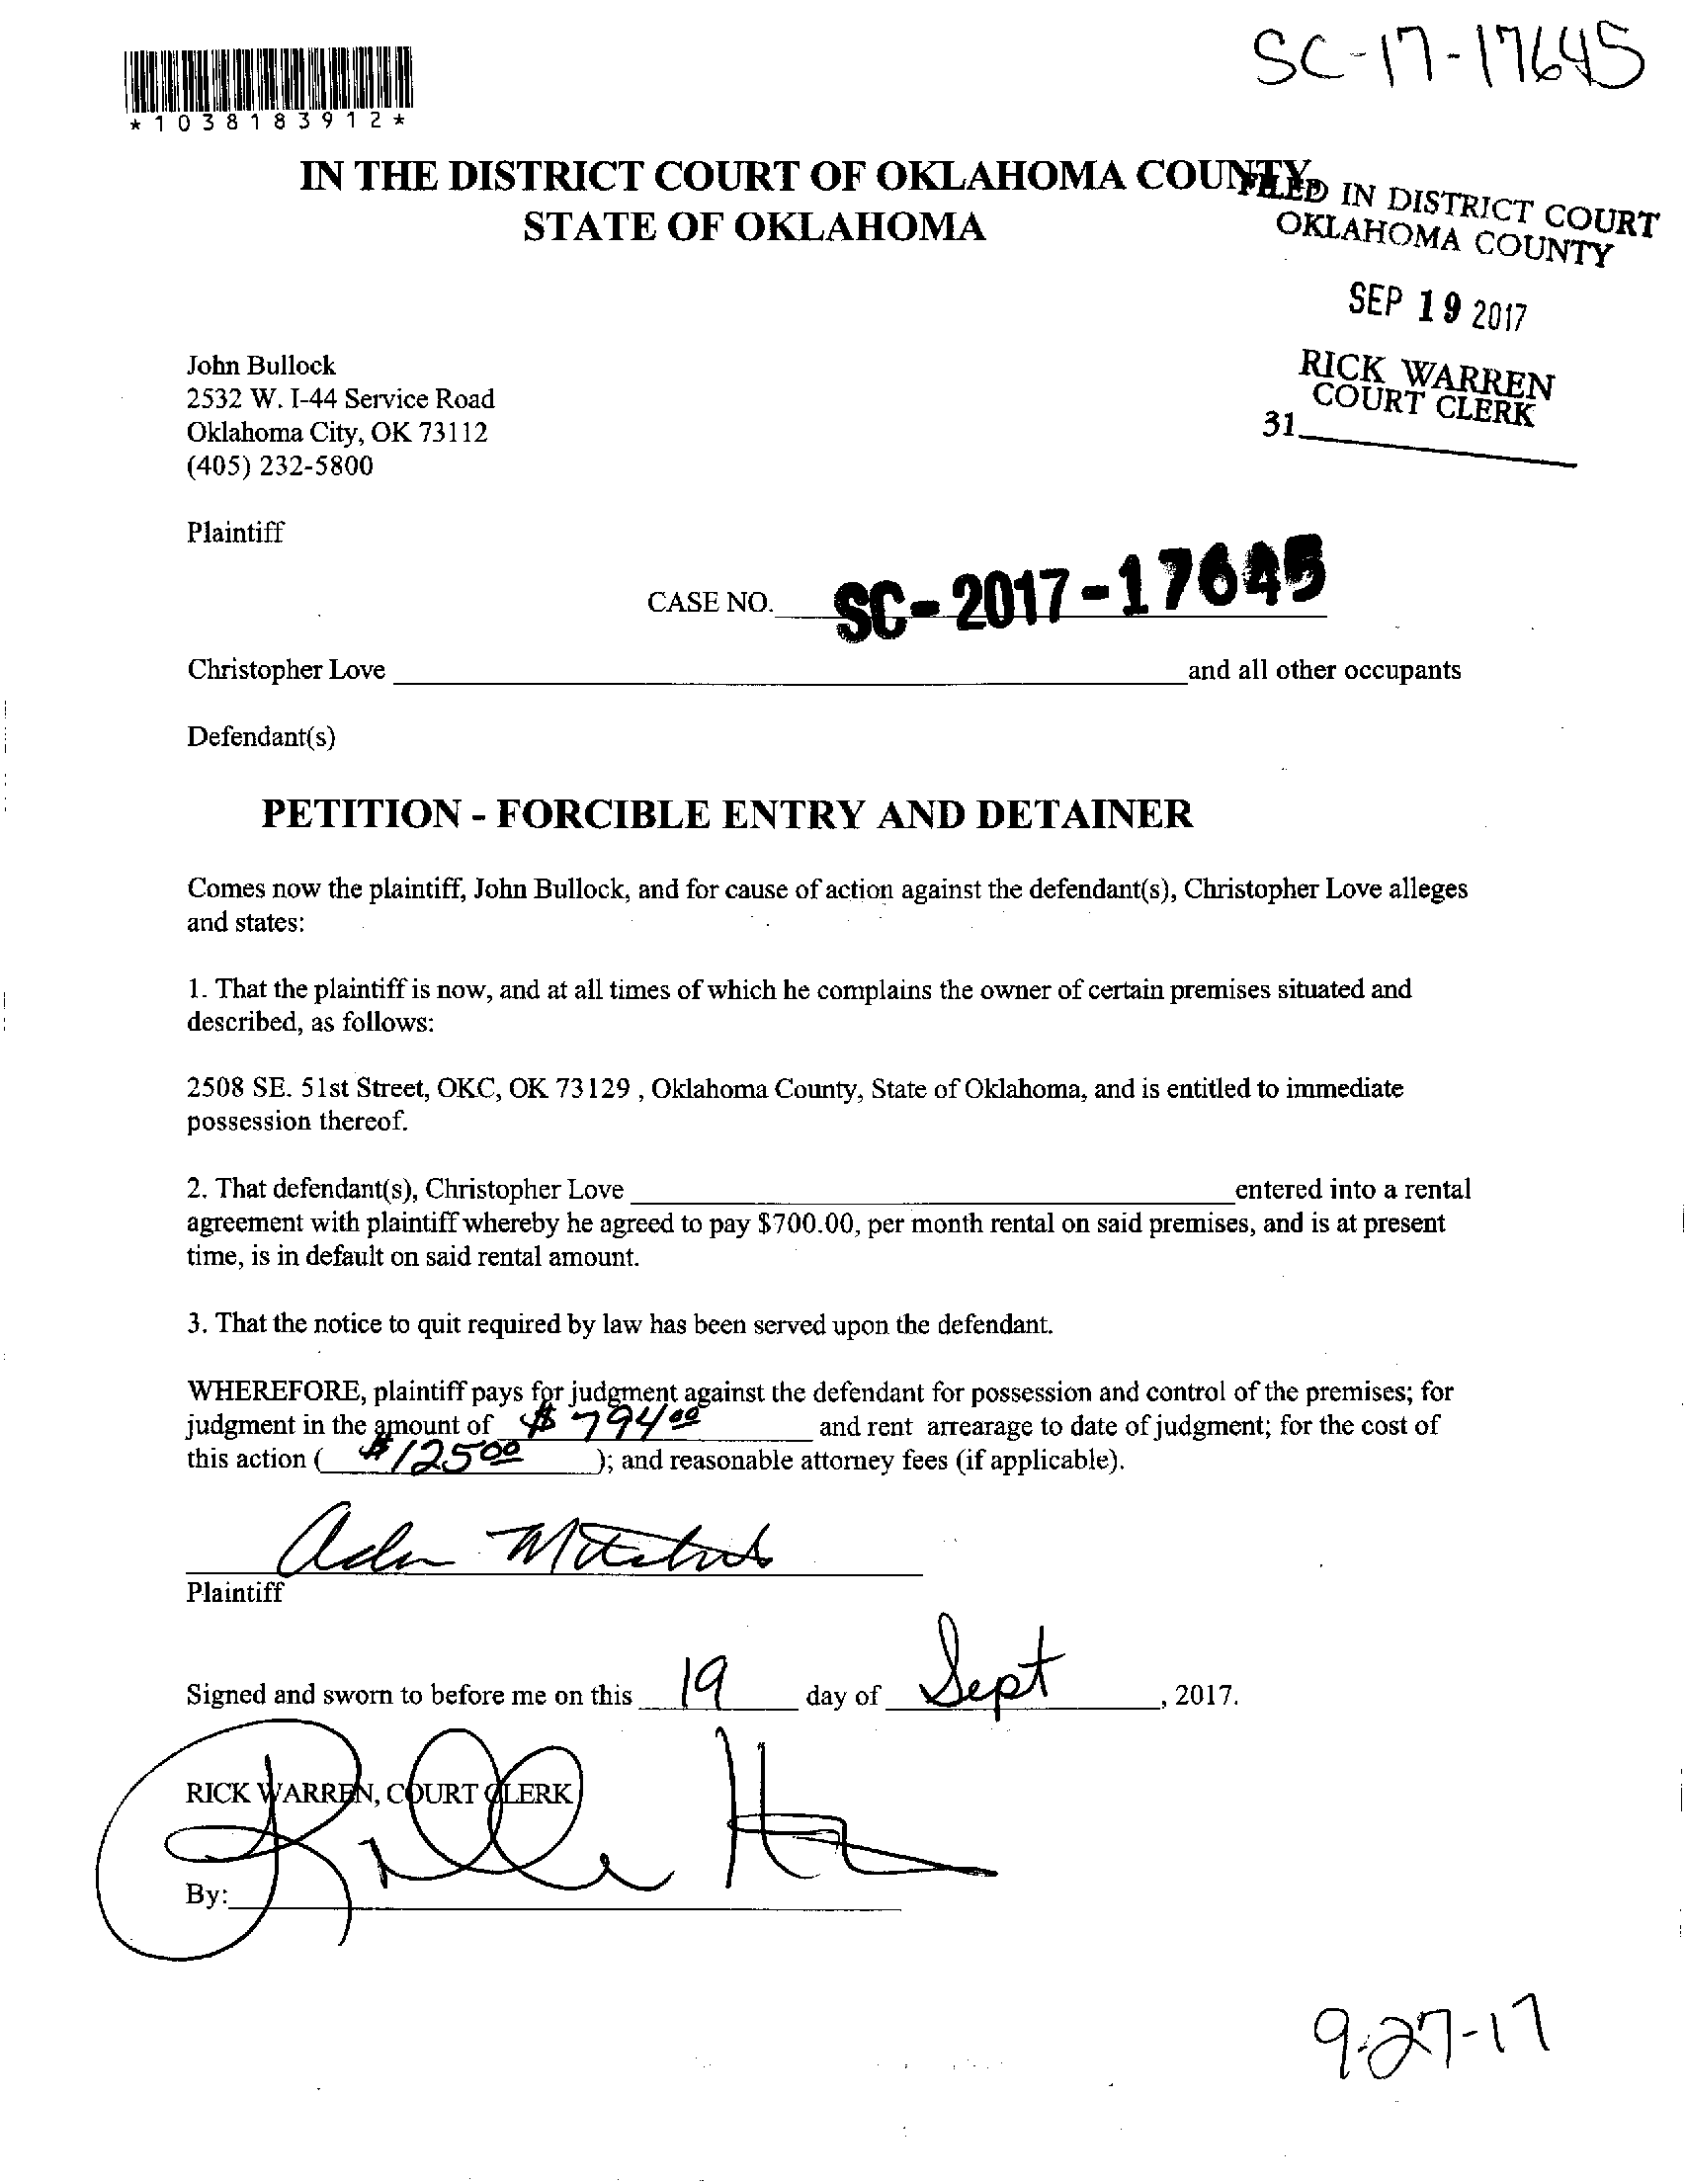 SC-17-17645
*1038183912*
IN THE DISTRICT COURT OF OKLAHOMA COUNTY
STATE OF OKLAHOMA
FILED IN DISTRICT COURT
OKLAHOMA COUNTY
SEP 19 2017
RICK WARREN
COURT CLERK
31
John Bullock
2532 W. I-44 Service Road
Oklahoma City, OK 73112
(405) 232-5800
Plaintiff
CASE NO. SC-2017-17645
Christopher Love and all other occupants
Defendant(s)
PETITION - FORCIBLE ENTRY AND DETAINER
Comes now the plaintiff, John Bullock, and for cause of action against the defendant(s), Christopher Love alleges
and states:
1. That the plaintiff is now, and at all times of which he complains the owner of certain premises situated and
described, as follows:
2508 SE. 51st Street, OKC, OK 73129 , Oklahoma County, State of Oklahoma, and is entitled to immediate
possession thereof.
2. That defendant(s), Christopher Love entered into a rental
agreement with plaintiff whereby he agreed to pay $700.00, per month rental on said premises, and is at present
time, is in default on said rental amount.
3. That the notice to quit required by law has been served upon the defendant.
WHEREFORE, plaintiff pays for judgment against the defendant for possession and control of the premises; for
judgment in the amount of $794.00 and rent arrearage to date of judgment; for the cost of
this action ( $125.00 ); and reasonable attorney fees (if applicable).
Plaintiff
Signed and sworn to before me on this 19 day of Sept, 2017.
RICK WARREN, COURT CLERK
By:
9-27-17